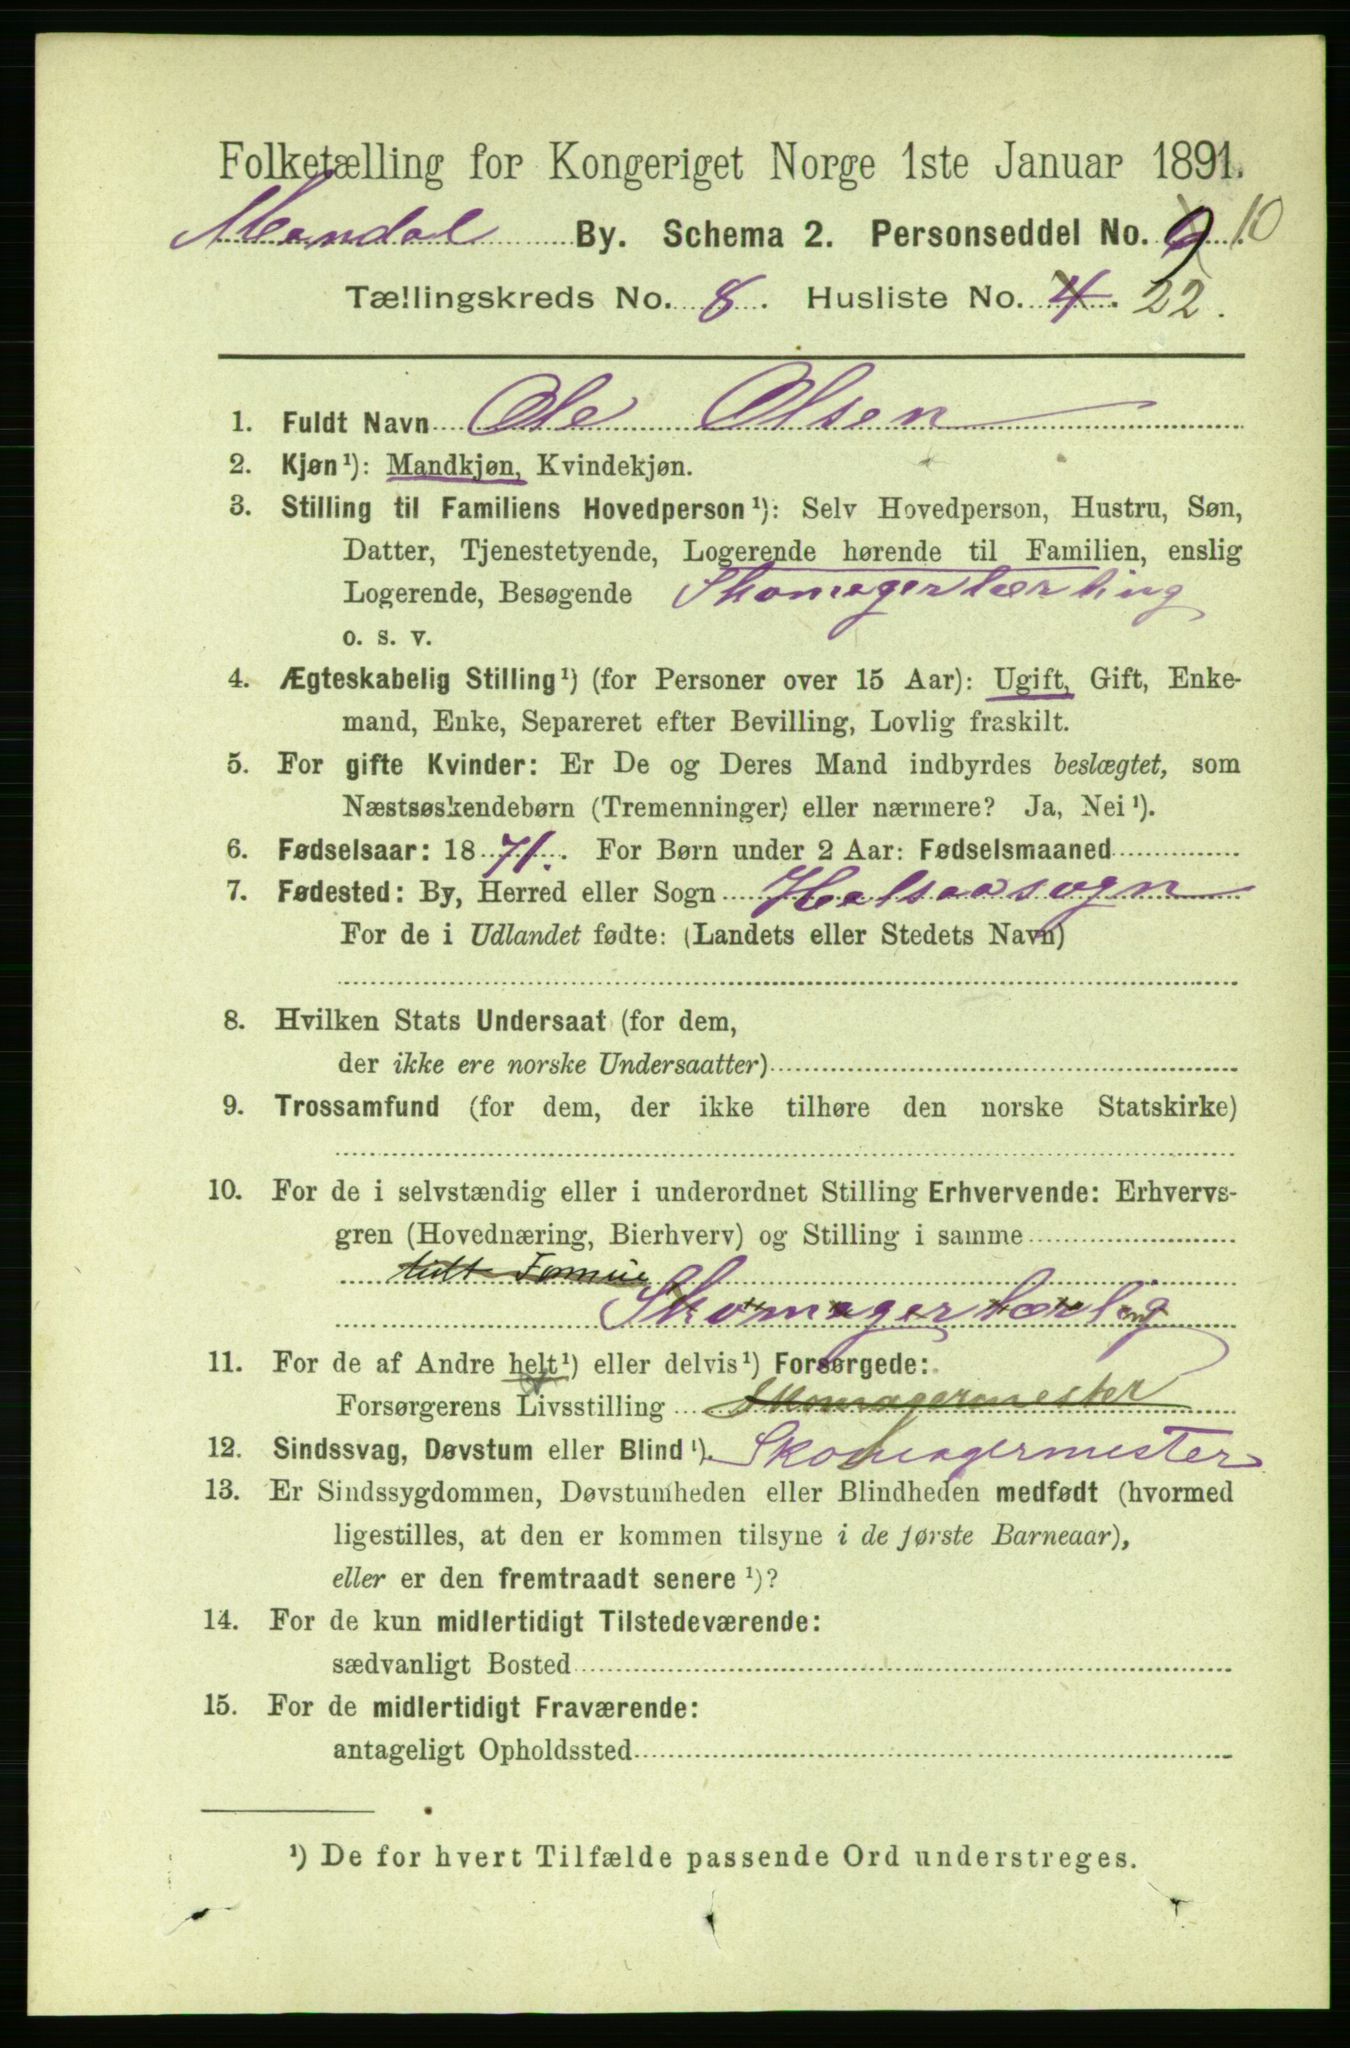 Folketælling for Kongeriget Norge 1ste Januar 1891.
Mandal By. Schema 2. Personseddel No. 9 10
Tællingskreds No. 8. Husliste No. 4. 22.
1. Fuldt Navn Ole Olsen
2. Kjøn¹): Mandkjøn, Kvindekjøn.
3. Stilling til Familiens Hovedperson¹): Selv Hovedperson, Hustru, Søn,
Datter, Tjenestetyende, Logerende hørende til Familien, enslig
Logerende, Besøgende Skomagerlærling
o. s. v.
4. Ægteskabelig Stilling¹) (for Personer over 15 Aar): Ugift, Gift, Enke-
mand, Enke, Separeret efter Bevilling, Lovlig fraskilt.
5. For gifte Kvinder: Er De og Deres Mand indbyrdes beslægtet, som
Næstsøskendebørn (Tremenninger) eller nærmere? Ja, Nei¹).
6. Fødselsaar: 1871. For Børn under 2 Aar: Fødselsmaaned
7. Fødested: By, Herred eller Sogn Halsaasogn
For de i Udlandet fødte: (Landets eller Stedets Navn)
8. Hvilken Stats Undersaat (for dem,
der ikke ere norske Undersaatter)
9. Trossamfund (for dem, der ikke tilhøre den norske Statskirke)
10. For de i selvstændig eller i underordnet Stilling Erhvervende: Erhvervs-
gren (Hovednæring, Bierhverv) og Stilling i samme
Skomagerlærlig
11. For de af Andre helt¹) eller delvis¹) Forsørgede:
Forsørgerens Livsstilling Skomagermester
12. Sindssvag, Døvstum eller Blind¹). Skomagermester
13. Er Sindssygdommen, Døvstumheden eller Blindheden medfødt (hvormed
ligestilles, at den er kommen tilsyne i de første Barneaar),
eller er den fremtraadt senere¹)?
14. For de kun midlertidigt Tilstedeværende:
sædvanligt Bosted
15. For de midlertidigt Fraværende:
antageligt Opholdssted
¹) De for hvert Tilfælde passende Ord understreges.